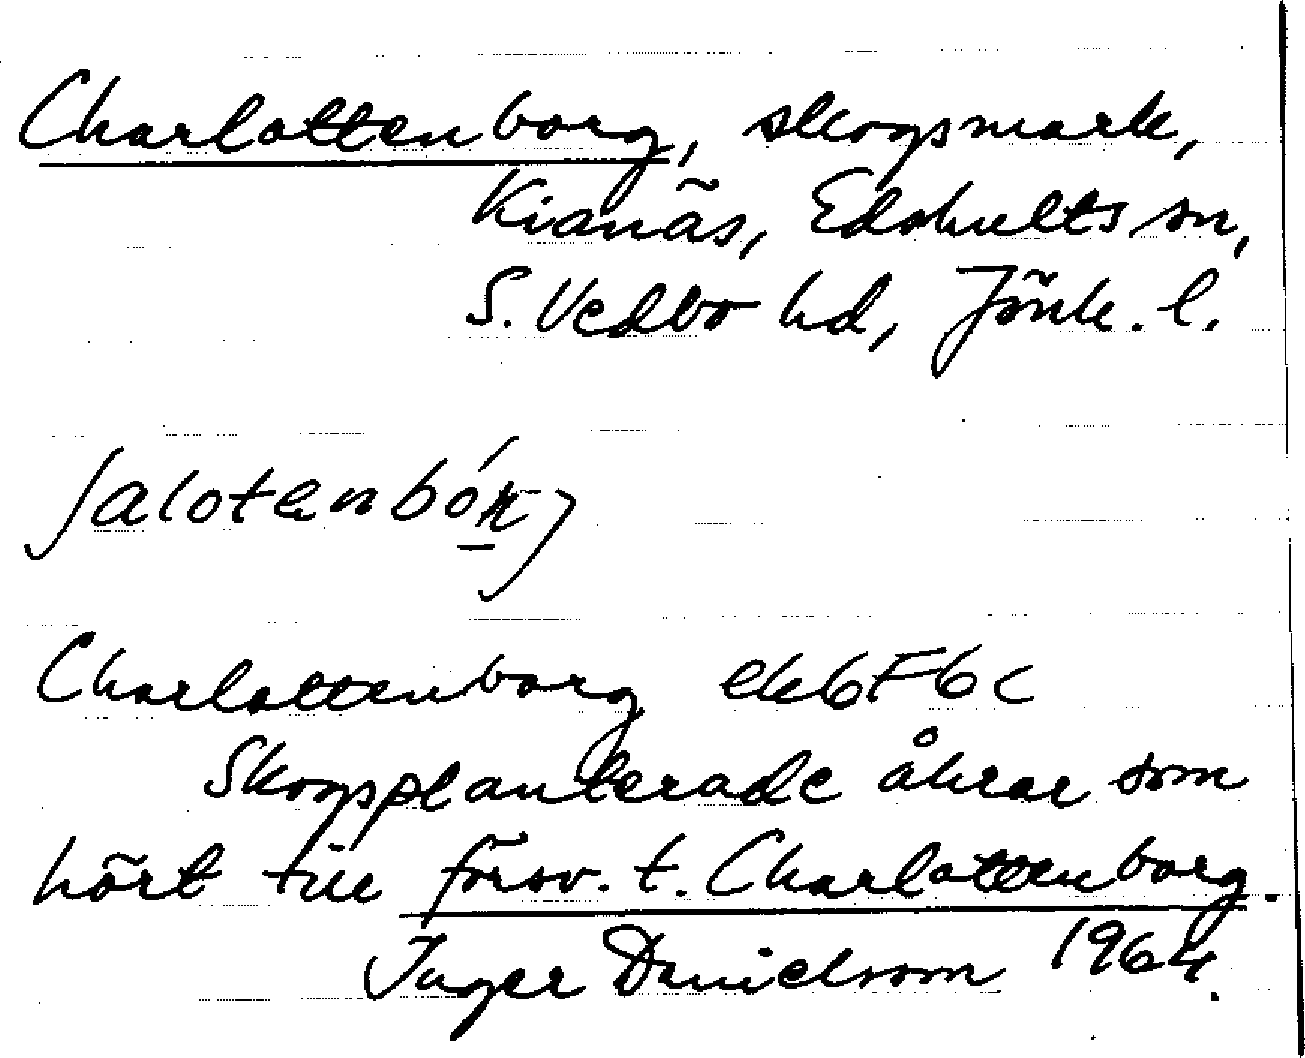 Charlottenborg, skogsmark,
Kianäs, Edshults sn,
S. Vedbo hd, Jönk. l.
Charlottenborg ek6F6c
Skogsplanterade åkrar som
hört till försv. t. Charlottenborg.
Inger Danielsson 1964.